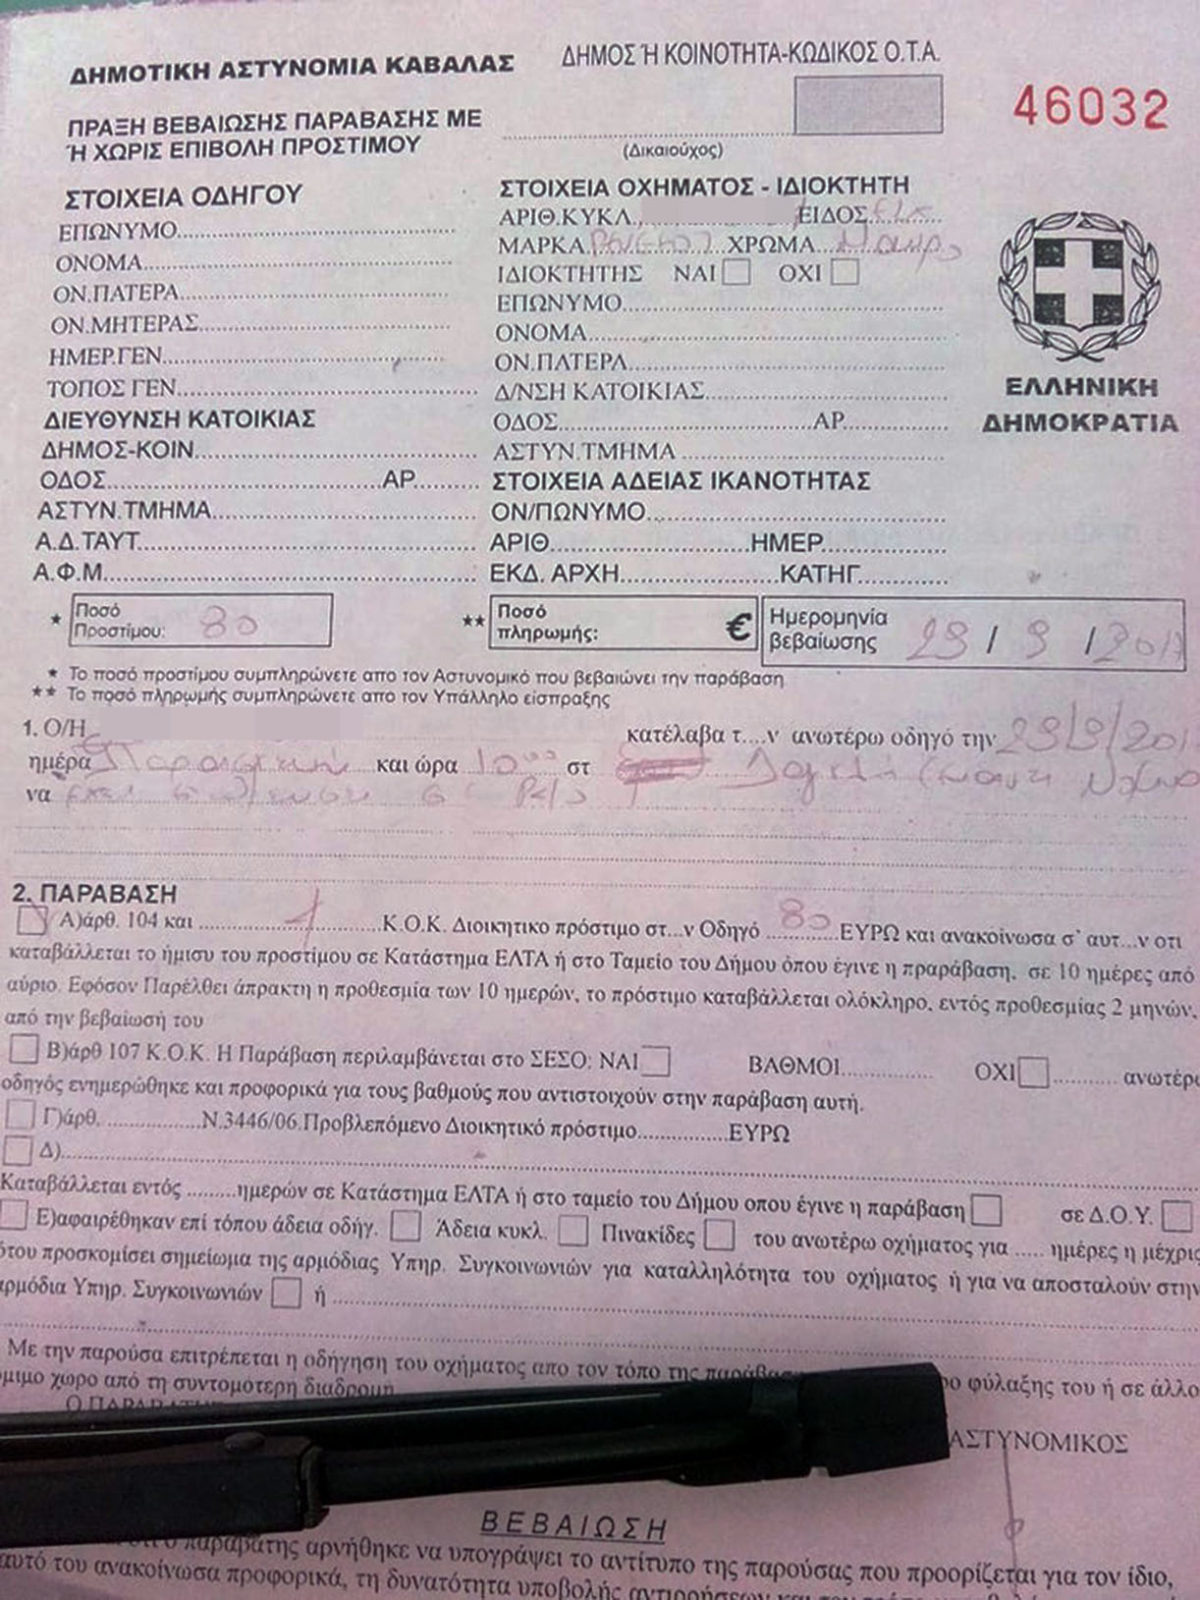 ΔΗΜΟΤΙΚΗ ΑΣΤΥΝΟΜΙΑ ΚΑΒΑΛΑΣ
ΔΗΜΟΣ Ή ΚΟΙΝΟΤΗΤΑ-ΚΩΔΙΚΟΣ Ο.Τ.Α.
46032
ΠΡΑΞΗ ΒΕΒΑΙΩΣΗΣ ΠΑΡΑΒΑΣΗΣ ΜΕ
Ή ΧΩΡΙΣ ΕΠΙΒΟΛΗ ΠΡΟΣΤΙΜΟΥ
(Δικαιούχος)
ΣΤΟΙΧΕΙΑ ΟΔΗΓΟΥ
ΕΠΩΝΥΜΟ
ΟΝΟΜΑ
ΟΝ.ΠΑΤΕΡΑ
ΟΝ.ΜΗΤΕΡΑΣ
ΗΜΕΡ.ΓΕΝ
ΤΟΠΟΣ ΓΕΝ
ΔΙΕΥΘΥΝΣΗ ΚΑΤΟΙΚΙΑΣ
ΔΗΜΟΣ-ΚΟΙΝ
ΟΔΟΣ ΑΡ
ΑΣΤΥΝ.ΤΜΗΜΑ
Α.Δ.ΤΑΥΤ
Α.Φ.Μ
ΣΤΟΙΧΕΙΑ ΟΧΗΜΑΤΟΣ - ΙΔΙΟΚΤΗΤΗ
ΑΡΙΘ.ΚΥΚΛ. ΕΙΔΟΣ
ΜΑΡΚΑ ΧΡΩΜΑ Μαύρο
ΙΔΙΟΚΤΗΤΗΣ ΝΑΙ ΟΧΙ
ΕΠΩΝΥΜΟ
ΟΝΟΜΑ
ΟΝ.ΠΑΤΕΡΑ
Δ/ΝΣΗ ΚΑΤΟΙΚΙΑΣ
ΟΔΟΣ ΑΡ
ΑΣΤΥΝ.ΤΜΗΜΑ
ΣΤΟΙΧΕΙΑ ΑΔΕΙΑΣ ΙΚΑΝΟΤΗΤΑΣ
ΟΝ/ΠΩΝΥΜΟ
ΑΡΙΘ ΗΜΕΡ
ΕΚΔ. ΑΡΧΗ ΚΑΤΗΓ
ΕΛΛΗΝΙΚΗ
ΔΗΜΟΚΡΑΤΙΑ
* Ποσό
Προστίμου: 80
** Ποσό
πληρωμής: €
Ημερομηνία
βεβαίωσης 29 / 9 / 2017
* Το ποσό προστίμου συμπληρώνετε απο τον Αστυνομικό που βεβαιώνει την παράβαση
** Το ποσό πληρωμής συμπληρώνετε απο τον Υπάλληλο είσπραξης
1. Ο/Η κατέλαβα τ....ν ανωτέρω οδηγό την 29/9/201
ημέρα Παρασκευή και ώρα 10 στ
να
2. ΠΑΡΑΒΑΣΗ
Α)άρθ. 104 και 1 Κ.Ο.Κ. Διοικητικο πρόστιμο στ...ν Οδηγό 80 ΕΥΡΩ και ανακοίνωσα σ' αυτ...ν οτι
καταβάλλεται το ήμισυ του προστίμου σε Κατάστημα ΕΛΤΑ ή στο Ταμείο του Δήμου όπου έγινε η πραράβαση, σε 10 ημέρες από
αύριο. Εφόσον Παρέλθει άπρακτη η προθεσμία των 10 ημερών, το πρόστιμο καταβάλλεται ολόκληρο, εντός προθεσμίας 2 μηνών,
από την βεβαίωσή του
Β)άρθ 107 Κ.Ο.Κ. Η Παράβαση περιλαμβάνεται στο ΣΕΣΟ: ΝΑΙ ΒΑΘΜΟΙ ΟΧΙ ανωτέρω
οδηγός ενημερώθηκε και προφορικά για τους βαθμούς που αντιστοιχούν στην παράβαση αυτή.
Γ)άρθ. Ν.3446/06.Προβλεπόμενο Διοικητικό πρόστιμο ΕΥΡΩ
Δ)
Καταβάλλεται εντός ημερών σε Κατάστημα ΕΛΤΑ ή στο ταμείο του Δήμου οπου έγινε η παράβαση σε Δ.Ο.Υ.
Ε)αφαιρέθηκαν επί τόπου άδεια οδήγ. Άδεια κυκλ. Πινακίδες του ανωτέρω οχήματος για ..... ημέρες η μέχρις
ότου προσκομίσει σημείωμα της αρμόδιας Υπηρ. Συγκοινωνιών για καταλληλότητα του οχήματος ή για να αποσταλούν στην
αρμόδια Υπηρ. Συγκοινωνιών ή
Με την παρούσα επιτρέπεται η οδήγηση του οχήματος απο τον τόπο της παράβασ φύλαξης του ή σε άλλο
χώρο από τη συντομοτερη διαδρομή
ΑΣΤΥΝΟΜΙΚΟΣ
ΒΕΒΑΙΩΣΗ
ο παραβάτης αρνήθηκε να υπογράψει το αντίτυπο της παρούσας που προορίζεται για τον ίδιο,
αυτό του ανακοίνωσα προφορικά, τη δυνατότητα υποβολής αντιρρήσεων